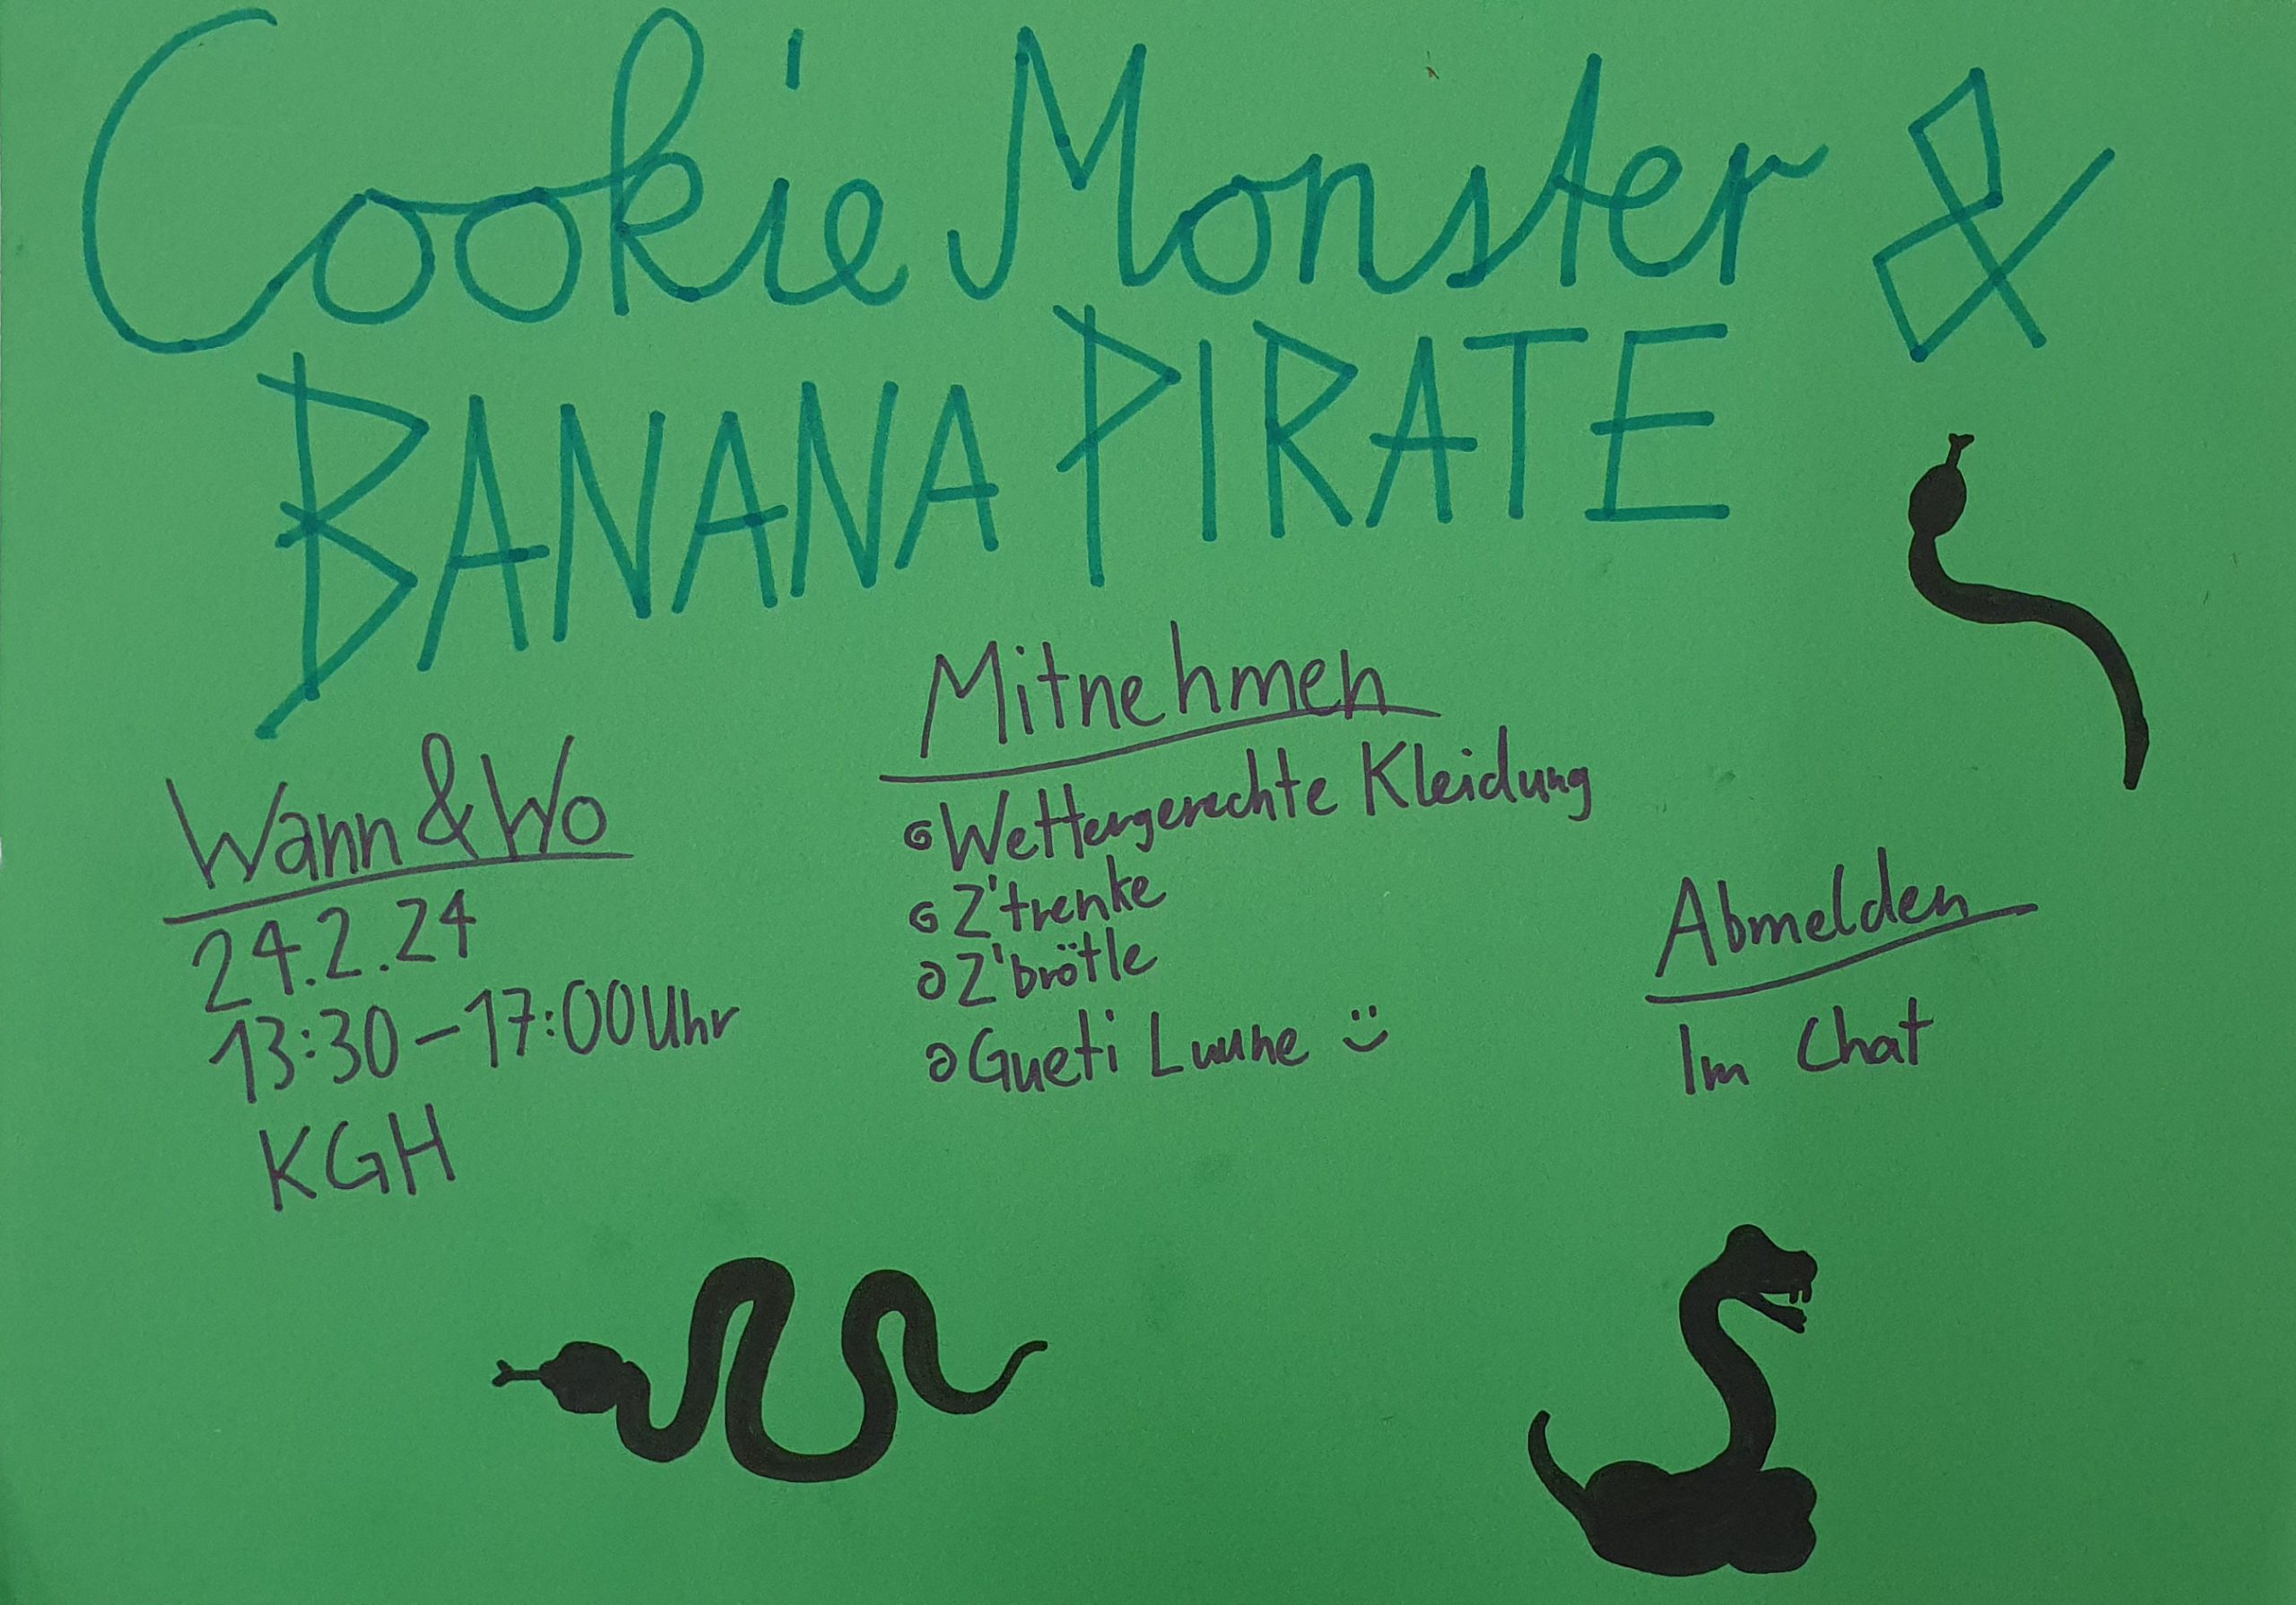 Cookie Monster &
BANANA PIRATE
Wann & Wo
24.2.24
13:30 – 17:00 Uhr
KGH
Mitnehmen
Wettergerechte Kleidung
Z'trenke
Z'brötle
Gueti Luune :)
Abmelden
Im Chat